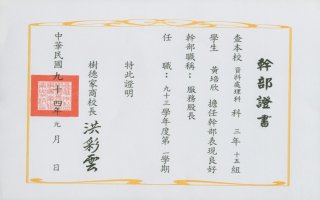 幹部證書
查本校 資料處理科 科 三年 十五 組
學生 黃培欣 擔任幹部表現良好
幹部職稱：服務股長
任職：九十三學年度第一學期
特此證明
樹德家商校長 洪彩雲
中華民國九十四年元月 日